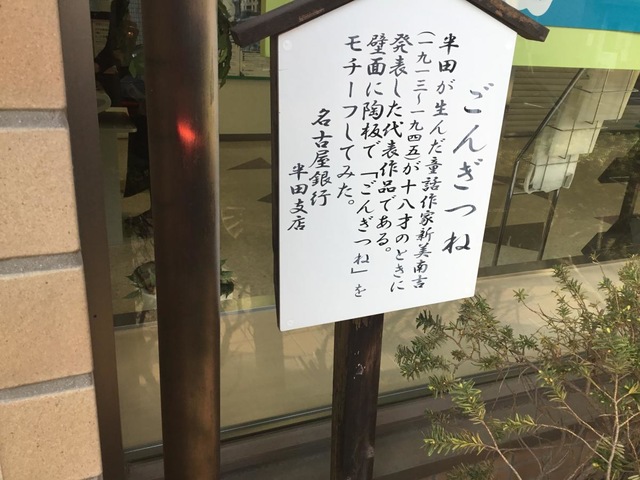 ごんぎつね
半田が生んだ童話作家新美南吉
(一九一三〜一九四五)が十八才のときに
発表した代表作品である。
壁面に陶板で「ごんぎつね」を
モチーフしてみた。
名古屋銀行
半田支店